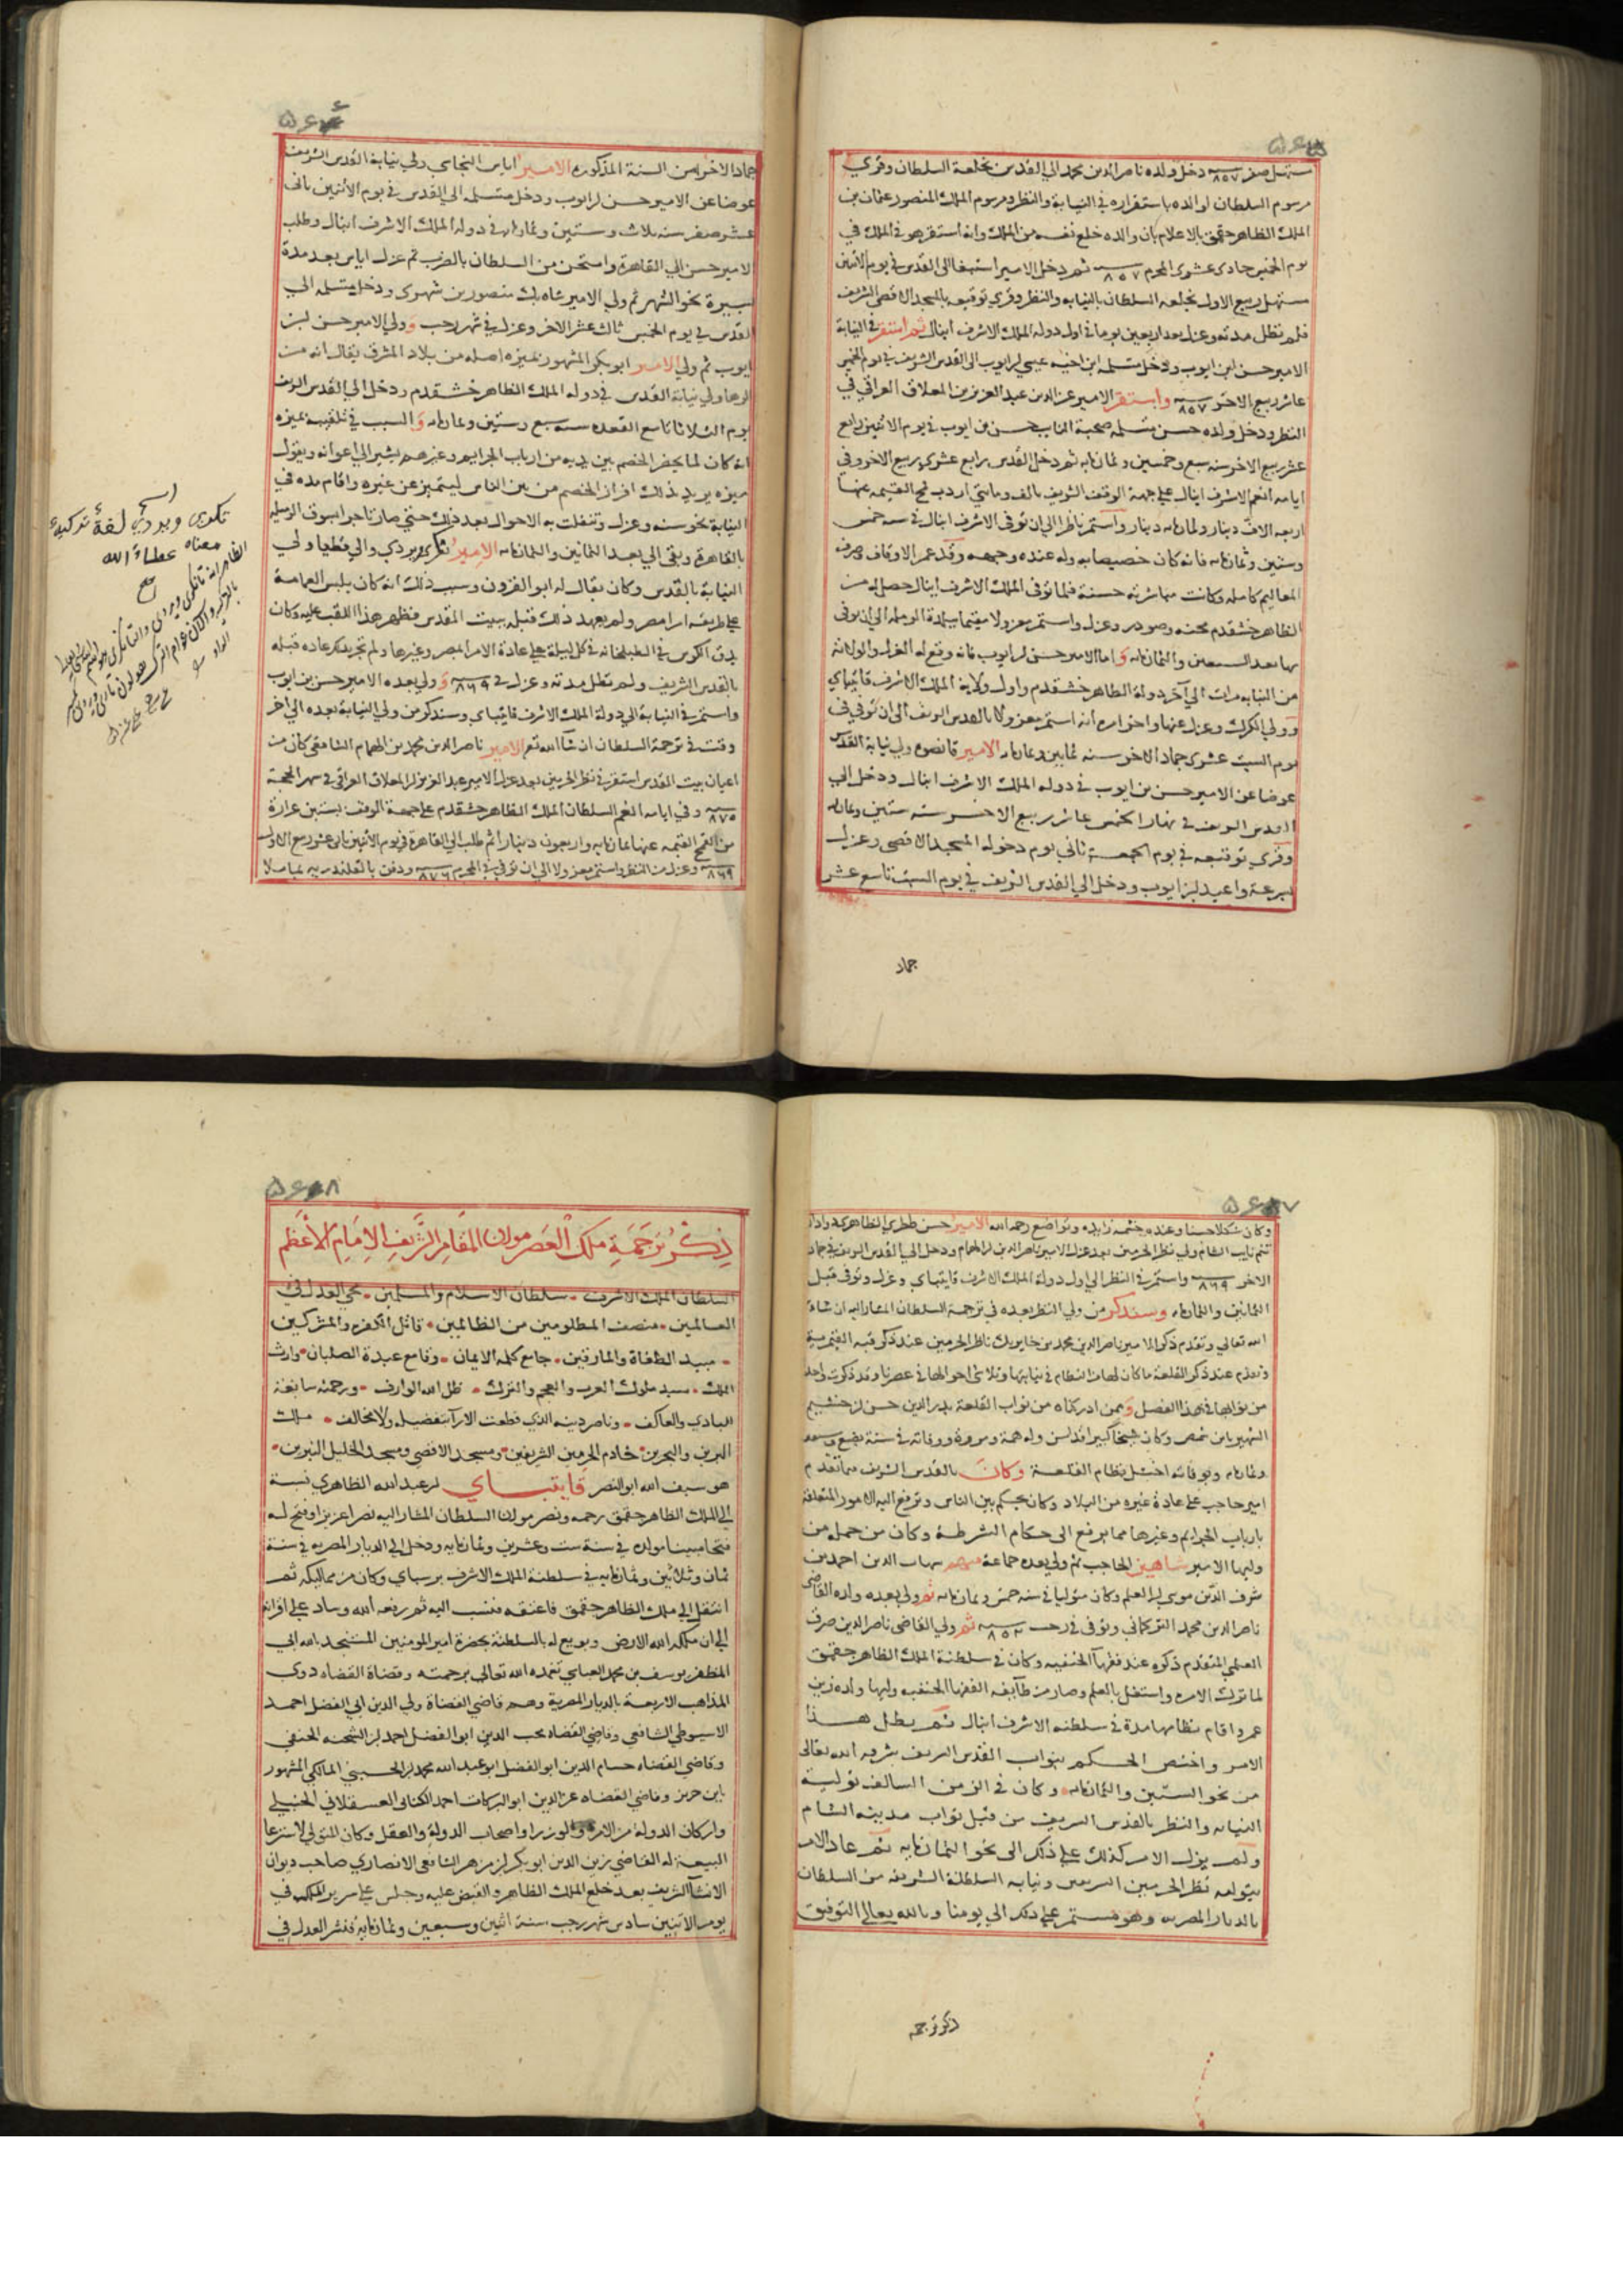 مستهل صفر سنة ٨٥٧ دخل ولده ناصر الدين محمد الى القدس بخلعة السلطان وقري
مرسوم السلطان لوالده باستقراره في النيابة والنظر ومرسوم الملك المنصور عثمان بن
الملك الظاهر جقمق بالاعلام بان والده خلع نفسه من الملك وانه استقر هو في الملك في
يوم الخميس حادى عشرى المحرم سنة ٨٥٧ ثم دخل الامير اسنبغا الى القدس في يوم الاثنين
مستهل ربيع الاول بخلعه السلطان بالنيابه والنظر وقري توقيعه بالمسجد الاقصى الشريف
فلم تطل مدته وعزل بعد اربعين يوما في اول دوله الملك الاشرف اينال ثم استقر في النيابة
الامير حسن ابن ايوب ودخل متسلمه ابن اخيه عيسي بن ايوب الى القدس الشريف في يوم الخميس
عاشر ربيع الاخر سنة ٨٥٧ واستقر الامير عز الدين عبد العزيز بن المعلاق العراقي في
النظر ودخل ولده حسن متسلمه صحبة النايب حسن بن ايوب في يوم الاثنين رابع
عشر ربيع الاخر سنه سبع وخمسين وثمانمايه ثم دخل القدس رابع عشري ربيع الاخر وفي
ايامه انعم الاشرف اينال على جهة الوقف الشريف بالف وماىتي اردب قمح القيمه عنها
اربعه الاف دينار وثمانمايه دينار واستمر ناظرا الى ان توفى الاشرف اينال في سنه خمس
وستين وثمانمايه فانه كان خصيصا به وله عنده وجهه وقد عمر الاوقاف وصرف
المعاليم كامله وكانت مباشرته حسنة فلما توفى الملك الاشرف اينال حصل له من
الظاهر خشقدم محنه وصودر وعزل واستمر معزولا مقيما ببلدة الرمله الى ان توفى
بها بعد السبعين والثمانمايه وَاما الامير حسن بن ايوب فانه وقع له العزل والولايه
من النيابه مرات الى آخر دولة الظاهر خشقدم واول ولاية الملك الاشرف قايتباي
وولي الكرك وعزل عنها واخر امره انه استمر معزولا بالقدس الشريف الى ان توفي في
يوم السبت عشرى جماد الاخر سنه ثمانين وثمانمايه الامير قانصوه ولي نيابة القدس
عوضا عن الامير حسن بن ايوب في دوله الملك الاشرف اينال ودخل الي
القدس الشريف في نهار الخميس عاشر ربيع الاخر سنه ستين وثمانمايه
وقري توقيعه في يوم الجمعة ثاني يوم دخوله المسجد الاقصى وعزل
بسرعة واعيد ابن ايوب ودخل الي القدس الشريف في يوم السبت تاسع عشر
جماد
جماد الاخر من السنة المذكوره الامير اياس البجاسي ولي نيابة القدس الشريف
عوضا عن الامير حسن بن ايوب ودخل متسلمه الى القدس في يوم الاثنين ثانى
عشر صفر سنه ثلاث وستين وثمانمايه في دوله الملك الاشرف اينال وطلب
الامير حسن الي القاهرة وامتحن من السلطان بالضرب ثم عزل اياس بعد مدة
يسيرة نحو الشهر ثم ولي الامير شاه بك منصور بن شهرى ودخل متسلمه الى
القدس في يوم الخميس ثالث عشر الاخر وعزل في شهر رجب وَولي الامير حسن بن
ايوب ثم ولي الامير ابو بكر المشهور بميزه اصله من بلاد المشرق يقال انه من
الرها ولي نيابة القدس في دوله الملك الظاهر خشقدم ودخل الي القدس الشريف
يوم الثلاثا تاسع القعده سنه سبع وستين وثمانمايه وَالسبب في تلقيبه بميزه
انه كان لما يحضر الخصم بين يديه من ارباب الجرايم وغيرهم يشير الي اعوانه ويقول
ميزه يريد بذلك افراز الخصم من بين الناس ليتميز عن غيره واقام مده في
النيابة نحو سنه وعزل وتنقلت به الاحوال بعد ذلك حتي صار تاجرا بسوق الرميله
بالقاهرة وبقى الى بعد الثمانين والثمانمايه الامير تغري بردي والي قطيا ولي
النيابة بالقدس وكان يقال له ابو القرون وسبب ذلك انه كان يلبس العمامة
على طريقه امرا مصر ولم يعهد ذلك قبله ببيت المقدس فظهر هذا اللقب عليه وكان
يدق الكوس في الطبلخانه في كل ليلة على عادة الامرا بمصر وغيرها ولم تجر بذلك عاده قبله
بالقدس الشريف ولم تطل مدته وعزل في سنة ٨٦٩ وَولي بعده الامير حسن بن ايوب
واستمر في النيابة الي دولة الملك الاشرف قايتباي وسنذكر من ولي النيابة بعده الى اخر
وقت في ترجمة السلطان ان شآ الله تعم الامير ناصر الدين محمد بن الهمام الشامى كان من
اعيان بيت المقدس استقر في نظر الحرمين بعد عزل الامير عبد العزيز ابن المعلاق العراقي في شهر الحجة
سنة ٨٧٥ وفي ايامه انعم السلطان الملك الظاهر خشقدم على جهة الوقف بستين غرارة
من القمح القيمه عنها ثمانمايه واربعون دينارا ثم طلب الى القاهرة في يوم الاثنين ثانى عشر ربيع الاول
سنة ٨٦٩ وعزل من النظر واستمر معزولا الي ان توفي في المحرم سنة ٨٧٦ ودفن بالقلندريه بماملا
اسم
تكرى ويردي لغة تركية
معناه عطاء الله
صح
وكان شكلا حسنا وعنده حشمه زايده وتواضع رحمه الله الامير حسن ططري الظاهري دوادار
تنم نايب الشام ولي نظر الحرمين بعد عزل الامير ناصر الدين ابن الهمام ودخل الي القدس الشريف في جماد
الاخر سنة ٨٦٩ واستمر في النظر الي اول دولة الملك الاشرف قايتباي وعزل وتوفى قبل
الثمانين والثمانمايه وسنذكر من ولي النظر بعده في ترجمة السلطان المشار اليه ان شاء
الله تعالي وتقدم ذكر الامير ناصر الدين محمد بن خاير بك ناظر الحرمين عند ذكر قبه القيمرية
وتقدم عند ذكر القلعة ما كان لها من النظام في نيابتها وتلاشى احوالها في عصرنا وقد ذكرت واحد
من نوابها في هذا الفصل وَممن ادركناه من نواب القلعة بدر الدين حسن بن حشيم
الشهير بابن شمس وكان شيخا كبيرا قد لسن وله همة ومروة ووفاته في سنة بضع وسبعين
وثمانمايه وبوفاته اختل نظام القلعة وكان بالقدس الشريف مما تقدم
امير حاجب على عادة غيره من البلاد وكان يحكم بين الناس وترفع اليه الامور المتعلقة
بارباب الجرايم وغيرها مما يرفع الى حكام الشرطة وكان من جمله من
وليها الامير شاهين الحاجب ثم ولي بعده جماعة منهم شهاب الدين احمد بن
شرف الدين موسي ابن العلم وكان متوليا في سنه خمس وثمانمايه ثم ولي بعده ولده القاضى
ناصر الدين محمد التركماني وتوفى في رجب سنة ٨٥٢ ثم ولي القاضى ناصر الدين صرف
العلمى المتقدم ذكره عند فقهآ الحنفيه وكان في سلطنة الملك الظاهر جقمق
لما ترك الامره واشتغل بالعلم وصار من طآيفه الفقها الحنفيه وليها ولده زين
عمر واقام بنظامها مدة في سلطنه الاشرف اينال ثم بطل هذا
الامر واختص الحكم بنواب القدس الشريف شرفه الله تعالى
من نحو الستين والثمانمايه وكان في الزمن السالف تولية
النيابه والنظر بالقدس الشريف من قبل نواب مدينة الشام
ولم يزل الامر كذلك علي ذلك الى نحو الثمانمايه ثم عاد الامر
بتوليه نظر الحرمين الشريفين ونيابه السلطنة الشريفه من السلطان
بالديار المصريه وهو مستمر علي ذلك الي يومنا وبالله تعالي التوفيق
ذكر ترجمة
ذكر ترجمة ملك العصر مولانا المقام الشريف الامام الاعظم
السلطان الملك الاشرف سلطان الاسلام والمسلمين محي العدل في
العالمين منصف المظلومين من الظالمين قاتل الكفره والمشركين
مبيد الطغاة والمارقين جامع كلمه الايمان وقامع عبدة الصلبان وارث
الملك سيد ملوك العرب والعجم والترك ظل الله الوارف ورحمته سابغة
البادي والعاكف وناصر دينه الذي قطعت الآرآ بتفضيله ولا مخالف ملك
البرين والبحرين خادم الحرمين الشريفين ومسجد الاقصى ومسجد الخليل النيرين
هو سيف الله ابو النصر قايتباي بن عبد الله الظاهري نسبة
الي الملك الظاهر جقمق رحمه ونصر مولانا السلطان المشار اليه نصرا عزيزا وفتح له
فتحا مبينا مولده في سنة ست وعشرين وثمانمايه ودخل الي الديار المصريه في سنة
ثمان وثلاثين وثمانمايه في سلطنة الملك الاشرف برسباي وكان من مماليكه ثم
انتقل الي ملك الظاهر جقمق فاعتقه فنسب اليه ثم رفعه الله وساد على اقرانه
الي ان ملكه الله الارض وبويع له بالسلطنة بحضرة امير المومنين المستنجد بالله ابي
المظفر يوسف بن محمد العباسي تغمده الله تعالي برحمته وقضاة القضاه ذوي
المذاهب الاربعة بالديار المصرية وهم قاضي القضاة ولي الدين ابي الفضل احمد
الاسيوطي الشافعي وقاضي القضاه محب الدين ابو الفضل احمد ابن الشحنه الحنفي
وقاضي القضاه حسام الدين ابو الفضل ابو عبد الله محمد ابن الحسيني المالكي المشهور
بابن حريز وقاضي القضاه عز الدين ابو البركات احمد الكنانى العسقلاني الحنبلي
واركان الدولة من الامرآ والوزرا واصحاب الدولة والعقل وكان المتولي لاسترعا
البيعة له القاضي زين الدين ابو بكر ابن مزهر الشافعى الانصاري صاحب ديوان
الانشآ الشريف بعد خلع الملك الظاهر والقبض عليه وجلس على سرير المملكه في
يوم الاثنين سادس شهر رجب سنة اثنين وسبعين وثمانمايه فنشر العدل في